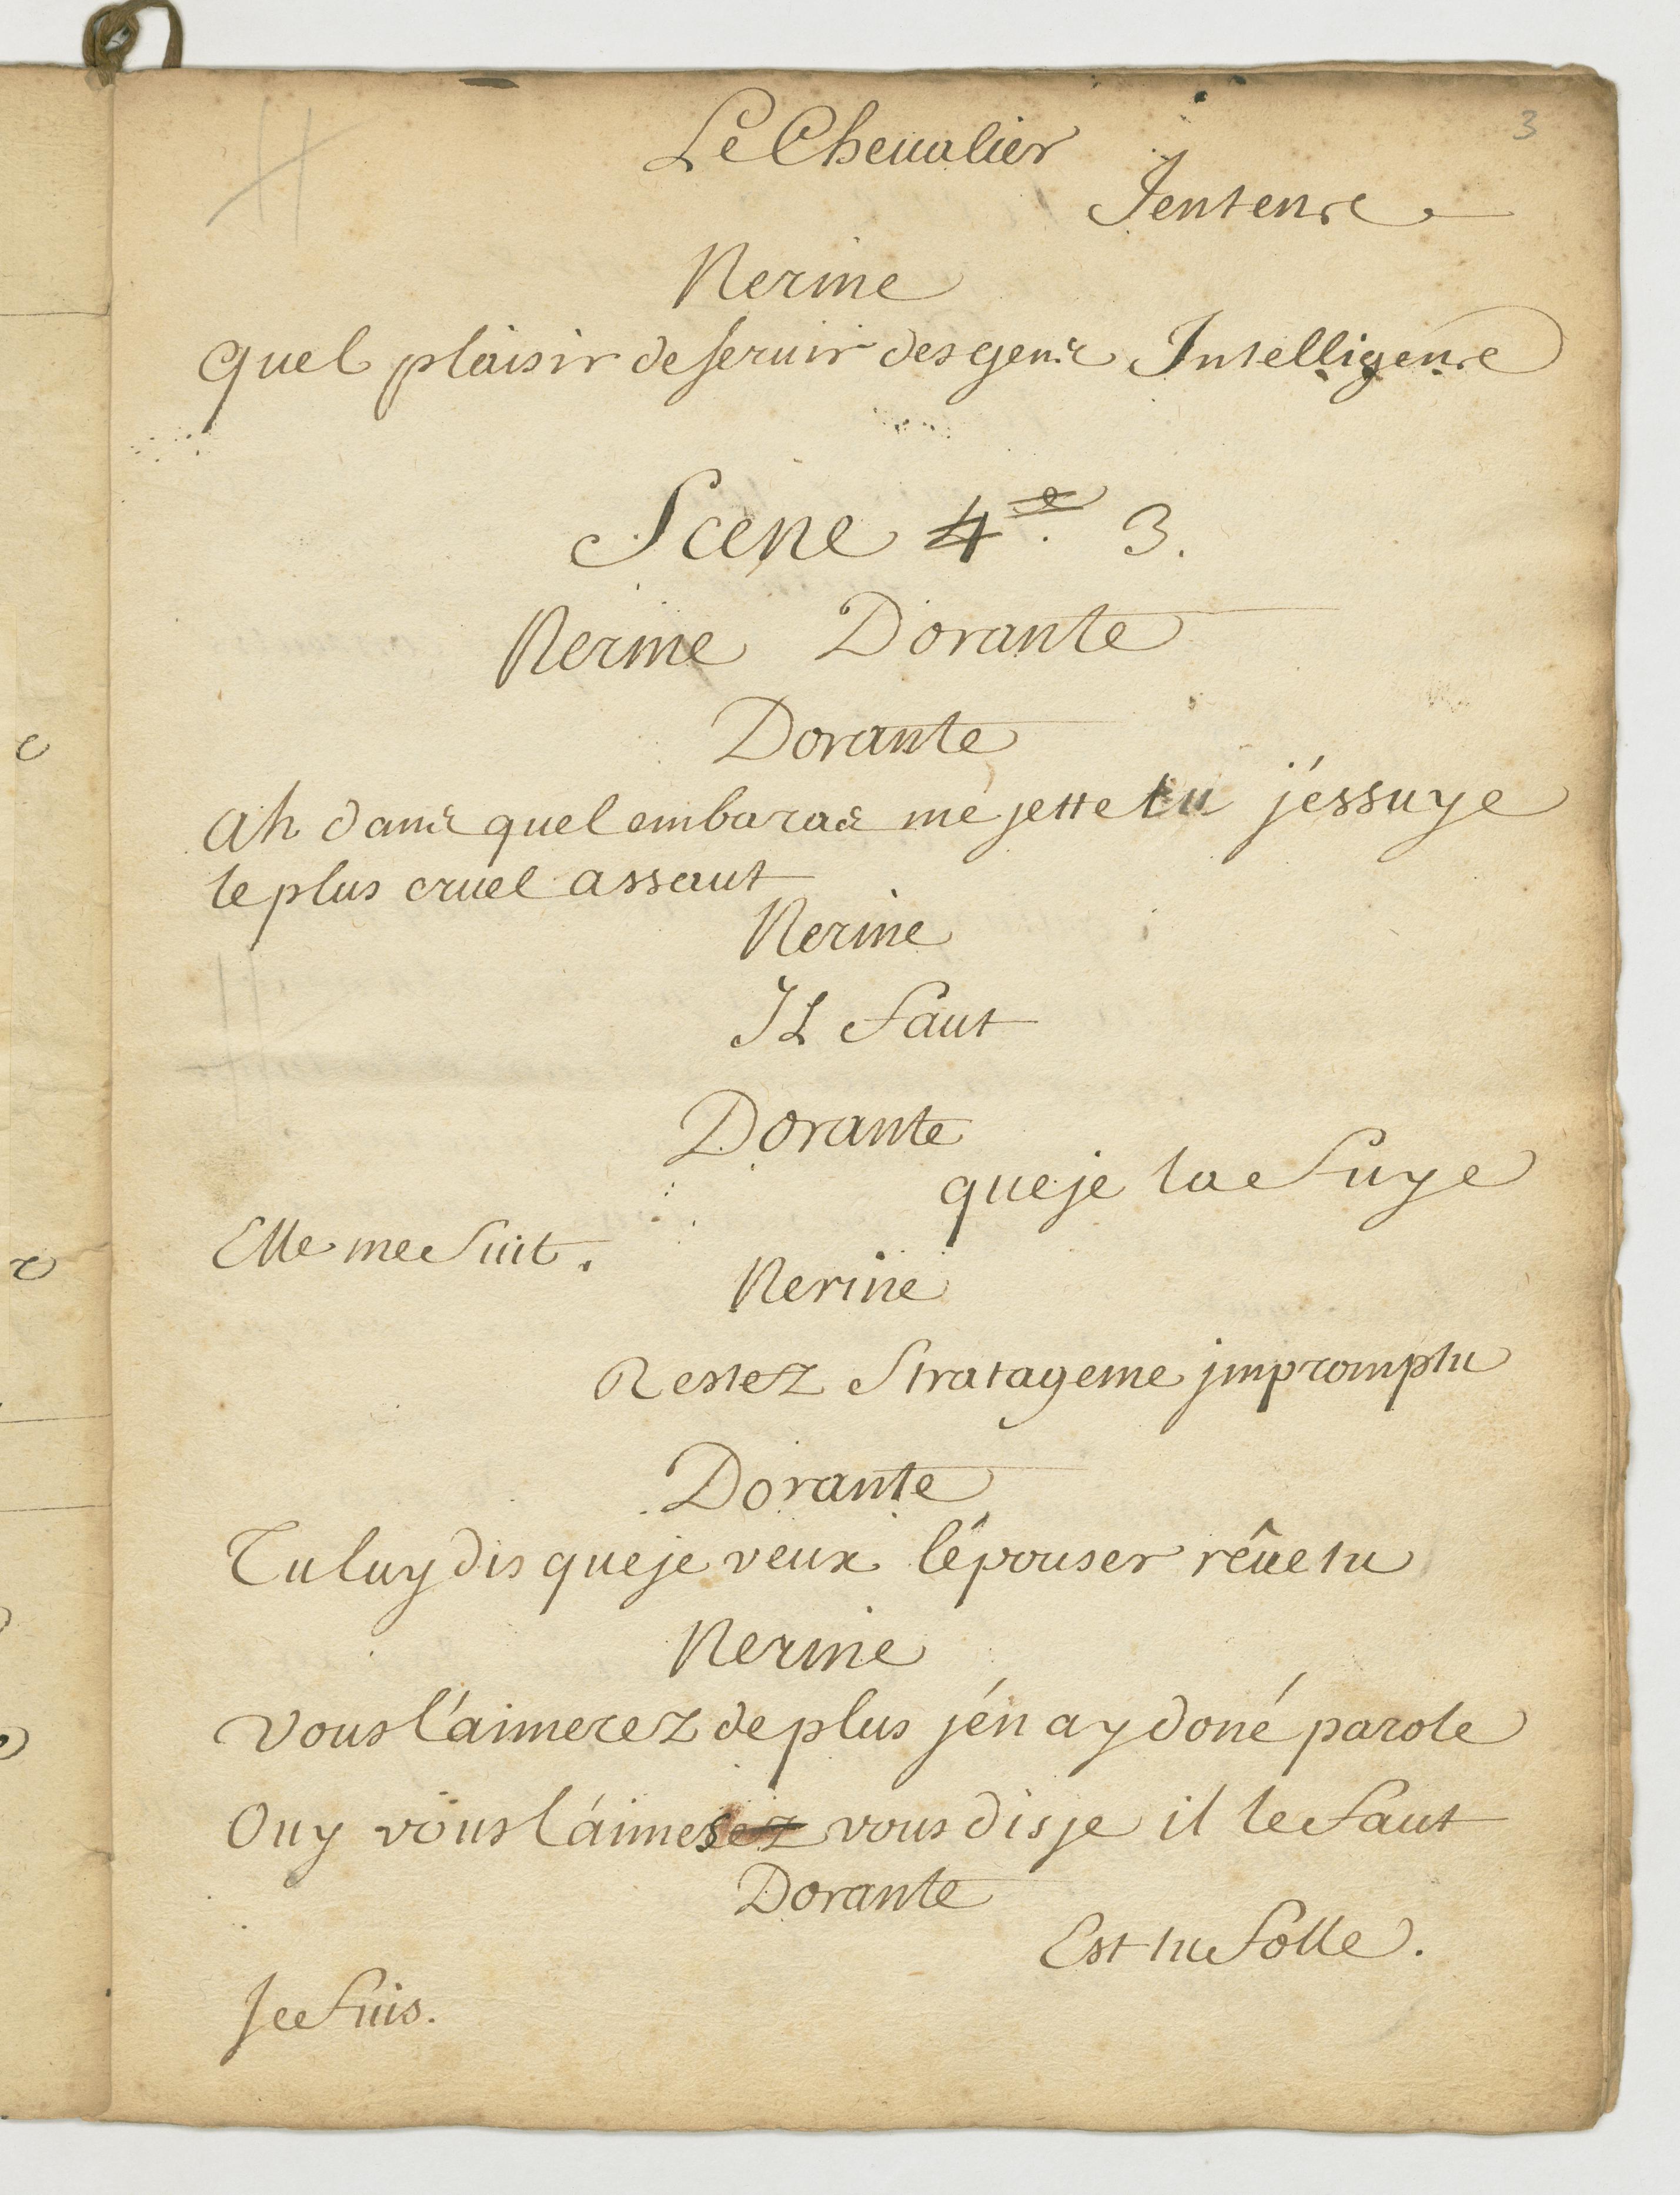 3
Le Cheualier
Jentens
Nerine
quel plaisir de seruir des gens Intelligens
Scene 4.e 3.
Nerine Dorante
Dorante
Ah dans quel embaras me jette tu j'éssuye
le plus cruel assaut
Nerine
Il faut
Dorante
que je la fuye
Elle me suit.
Nerine
Restez Stratageme jmpromptu
Dorante
Tu luy dis que je veux l'épouser rêue tu
Nerine
vous l'aimerez de plus j'én ay doné parole
Ouy vous l'aimerez vous dis je il le faut
Dorante
Est tu folle.
Je suis.